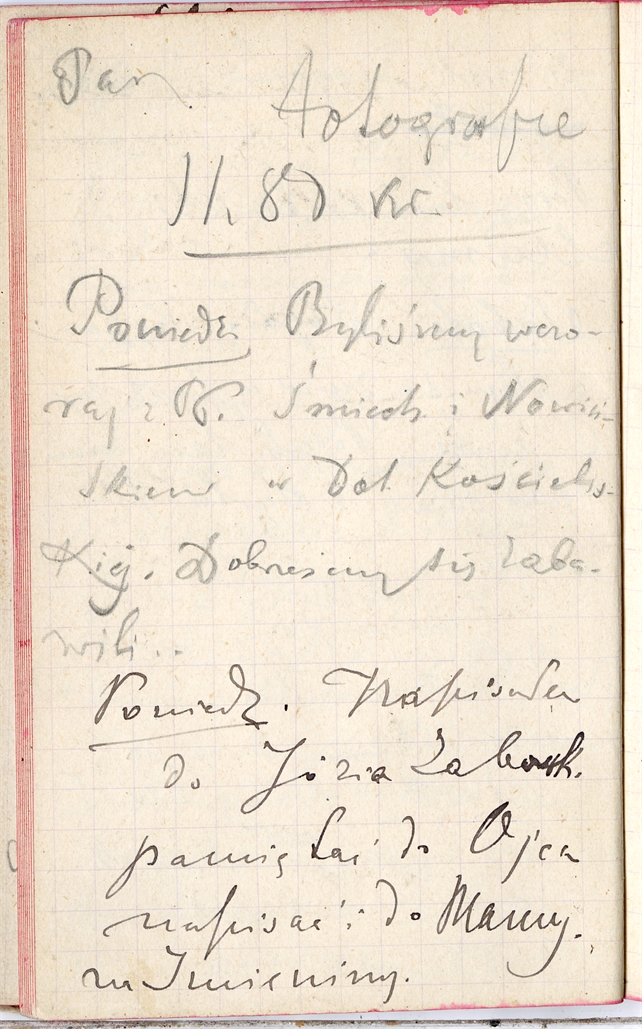 Pan
fotografie
11.80 kr.
Poniedz. Byliśmy wczo-
raj z P. Śmiech i Nowiń-
skiem w Dol Kościelis-
kiej. Dobrześmy się zaba-
wili..
Poniedz. Napisałem
do Józia Zabowsk.
pamiętać do Ojca
napisać i do Mamy.
na Imieniny.